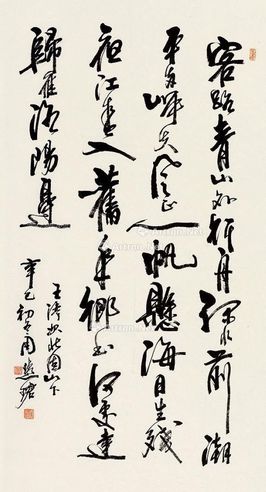 客路青山外行舟綠水前潮
平兩岸失風正一帆懸海日生殘
夜江春入舊年鄉書何處達
歸雁洛陽邊
王灣次北固山下
辛巳初冬周慧珺